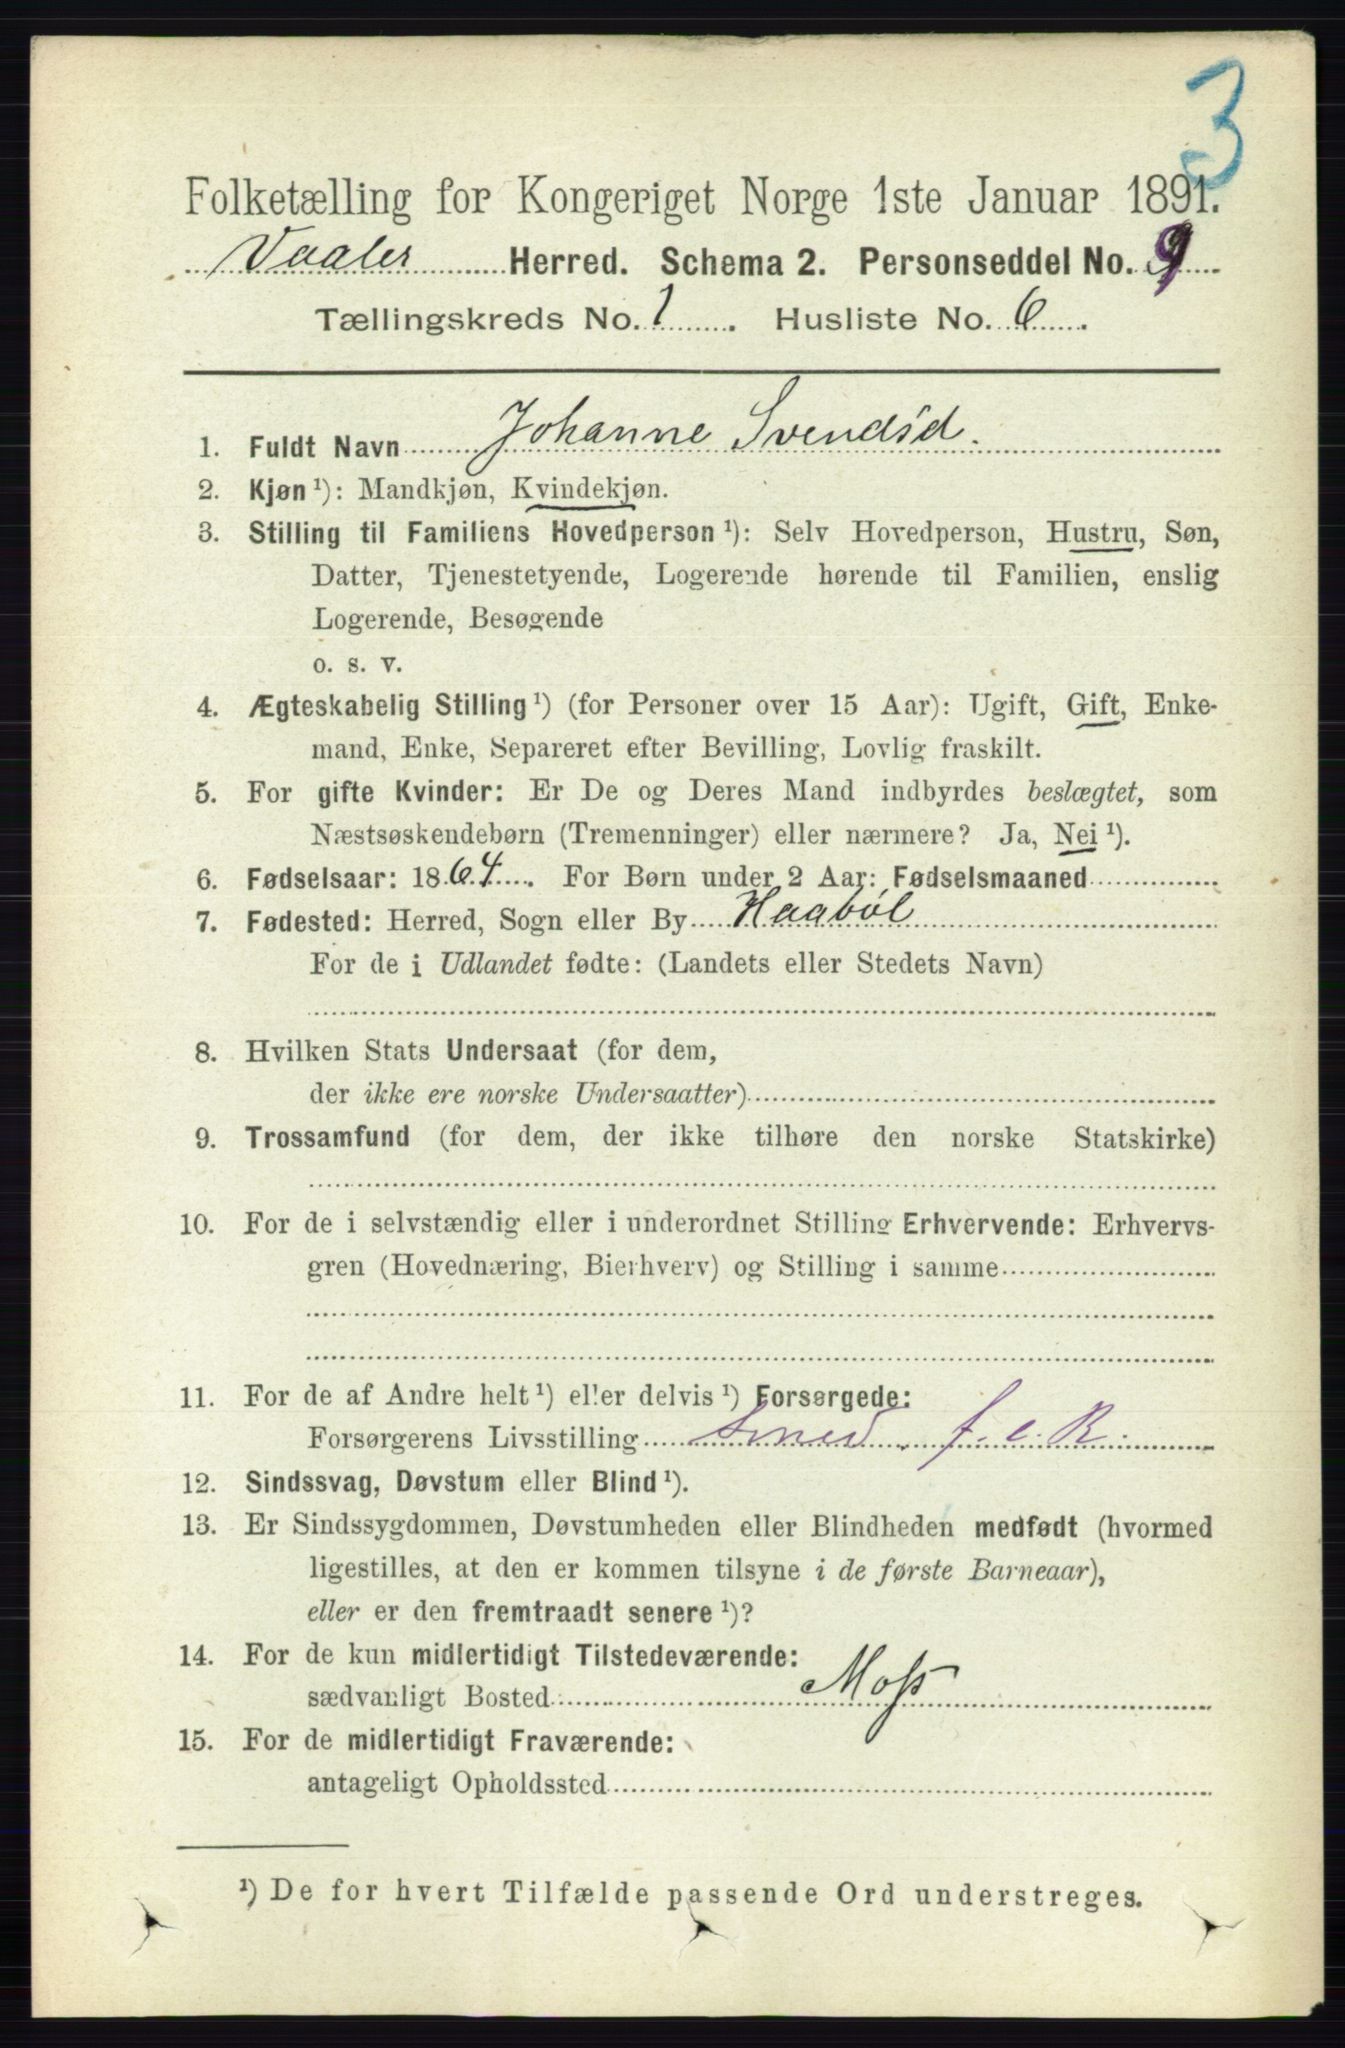 3
Folketælling for Kongeriget Norge 1ste Januar 1891.
Vaaler Herred. Schema 2. Personseddel No. 9
Tællingskreds No. 1. Husliste No. 6.
1. Fuldt Navn Johanne Svendsd.
2. Kjøn ¹): Mandkjøn, Kvindekjøn.
3. Stilling til Familiens Hovedperson ¹): Selv Hovedperson, Hustru, Søn,
Datter, Tjenestetyende, Logerende hørende til Familien, enslig
Logerende, Besøgende
o. s. v.
4. Ægteskabelig Stilling ¹) (for Personer over 15 Aar): Ugift, Gift, Enke-
mand, Enke, Separeret efter Bevilling, Lovlig fraskilt.
5. For gifte Kvinder: Er De og Deres Mand indbyrdes beslægtet, som
Næstsøskendebørn (Tremenninger) eller nærmere? Ja, Nei ¹).
6. Fødselsaar: 1864. For Børn under 2 Aar: Fødselsmaaned
7. Fødested: Herred, Sogn eller By Haabøl
For de i Udlandet fødte: (Landets eller Stedets Navn)
8. Hvilken Stats Undersaat (for dem,
der ikke ere norske Undersaatter)
9. Trossamfund (for dem, der ikke tilhøre den norske Statskirke)
10. For de i selvstændig eller i underordnet Stilling Erhvervende: Erhvervs-
gren (Hovednæring, Bierhverv) og Stilling i samme
11. For de af Andre helt ¹) eller delvis ¹) Forsørgede:
Forsørgerens Livsstilling Smed. f. e. R.
12. Sindssvag, Døvstum eller Blind ¹).
13. Er Sindssygdommen, Døvstumheden eller Blindheden medfødt (hvormed
ligestilles, at den er kommen tilsyne i de første Barneaar),
eller er den fremtraadt senere ¹)?
14. For de kun midlertidigt Tilstedeværende:
sædvanligt Bosted Moss
15. For de midlertidigt Fraværende:
antageligt Opholdssted
¹) De for hvert Tilfælde passende Ord understreges.